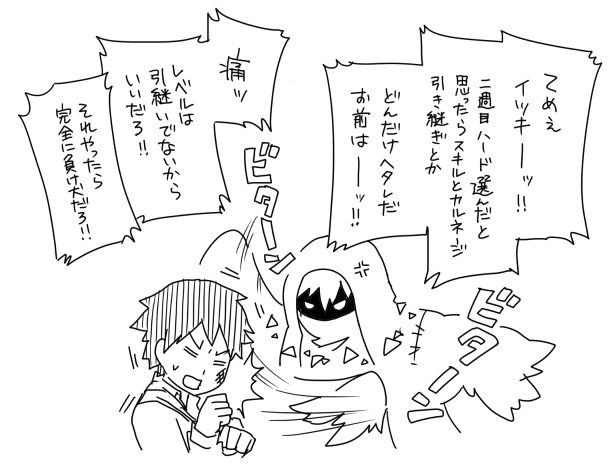 てめぇ
イツキーーッ!!
二週目ハード選んだと
思ったらスキルとカルネージ
引き継ぎとか
どんだけヘタレだ
お前はーーッ!!
痛ッ
レベルは
引継いでないから
いいだろ!!
それやったら
完全に負け犬だろ!!
ビターン
ビターン